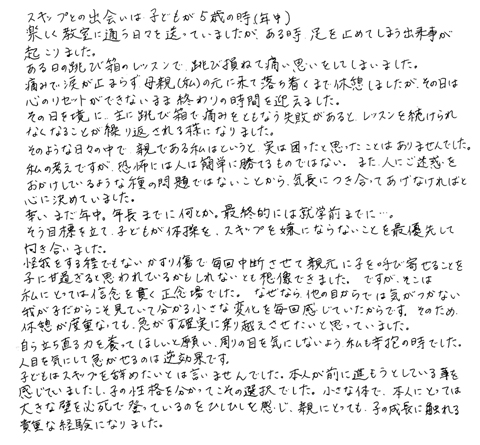 スキップとの出会いは子どもが5歳の時(年中)
楽しく教室に通う日々を送っていましたが、ある時、足を止めてしまう出来事が
起こりました。
ある日の跳び箱のレッスンで、跳び損ねて痛い思いをしてしまいました。
痛みで涙が止まらず母親(私)の元に来て落ち着くまで休憩しましたが、その日は
心のリセットができないまま終わりの時間を迎えました。
その日を境に、主に跳び箱で痛みをともなう失敗があると、レッスンを続けられ
なくなることが繰り返される様になりました。
そのような日々の中で、親である私はというと、実は困ったと思ったことはありませんでした。
私の考えですが、恐怖には人は簡単に勝てるものではない。また、人にご迷惑を
おかけしているような種の問題ではないことから、気長につき合ってあげなければと
心に決めていました。
幸い、まだ年中。年長までに何とか。最終的には就学前までに…。
そう目標を立て、子どもが体操を、スキップを嫌にならないことを最優先して
向き合いました。
怪我をする程でもないかすり傷で毎回中断させて親元に子を呼び寄せることを
子に甘過ぎると思われているかもしれないとも想像できました。ですが、そこは
私にとっては信念を貫く正念場でした。なぜなら、他の目からでは気がつかない
我が子だからこそ見ていて分かる小さな変化を毎回感じていたからです。そのため、
休憩が度重なっても、急がず確実に乗り越えさせたいと思っていました。
自ら立ち直る力を養ってほしいと願い、周りの目を気にしないよう私も辛抱の時でした。
人目を気にして急がせるのは逆効果です。
子どもはスキップを辞めたいとは言いませんでした。本人が前に進もうとしている事を
感じていましたし、子の性格を分かってこその選択でした。小さな体で、本人にとっては
大きな壁を必死で登っているのをひしひしと感じ、親にとっても、子の成長に触れる
貴重な経験になりました。